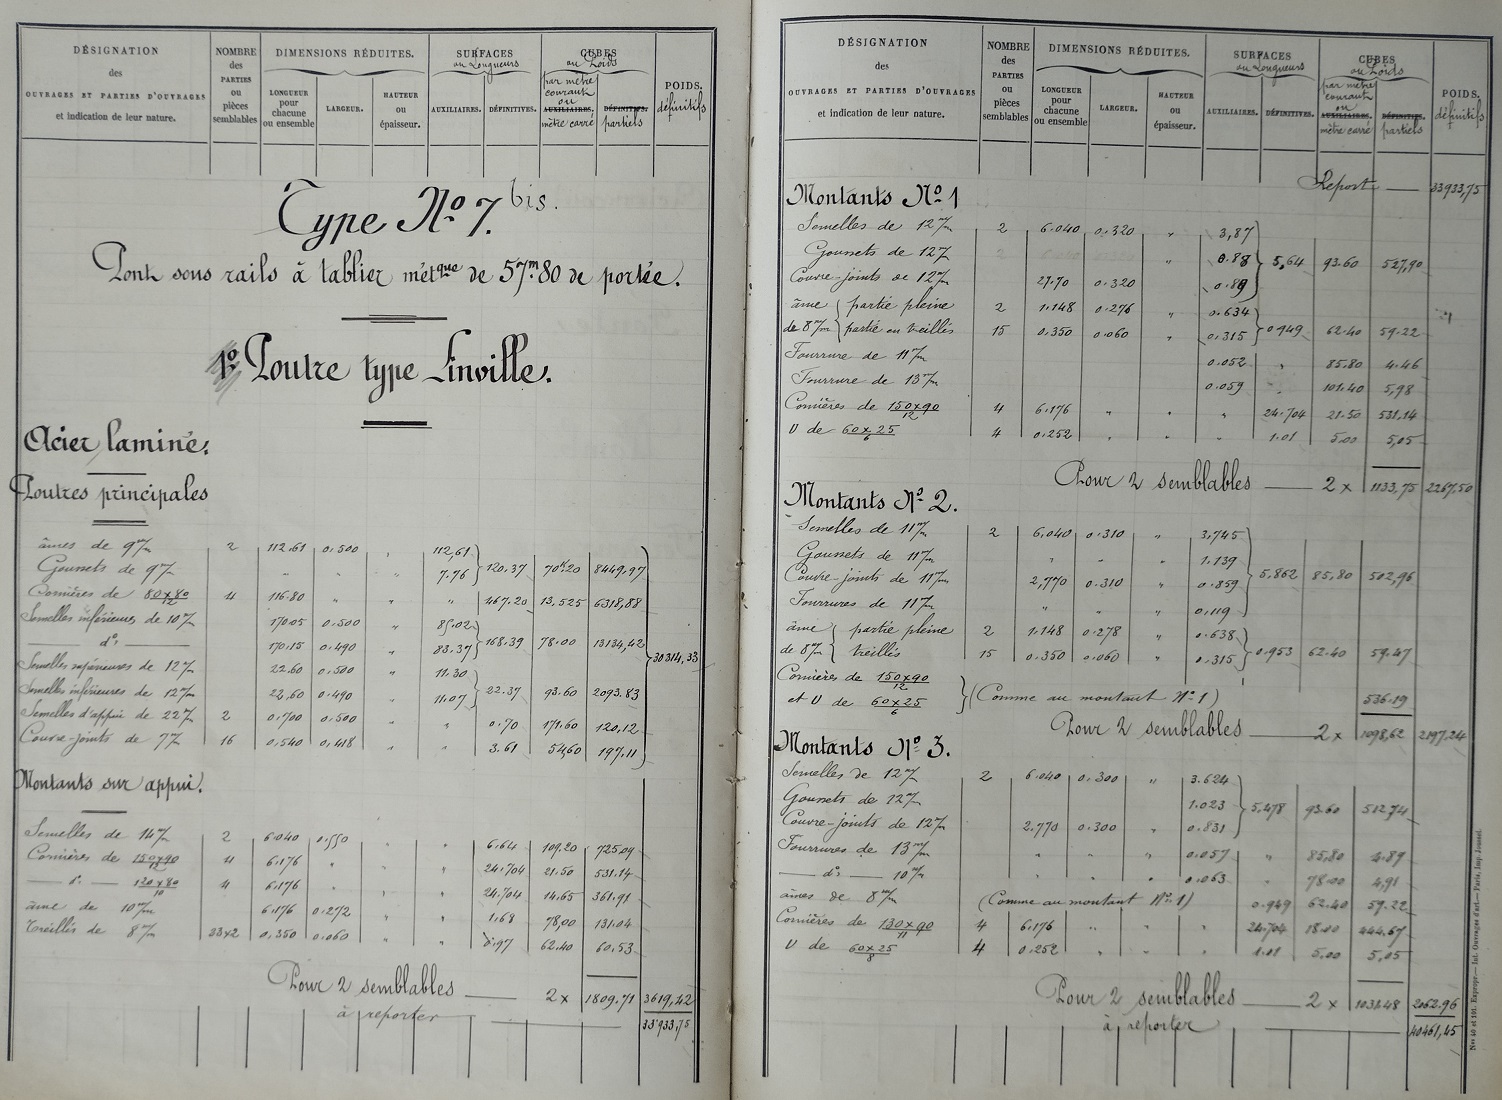 DÉSIGNATION des OUVRAGES ET PARTIES D'OUVRAGES et indication de leur nature.
NOMBRE des PARTIES ou pièces semblables
DIMENSIONS RÉDUITES.
LONGUEUR pour chacune ou ensemble
LARGEUR.
HAUTEUR ou épaisseur.
SURFACES ou Longueurs
AUXILIAIRES.
DÉFINITIVES.
CUBES ou Poids
par mètre courant ou AUXILIAIRES. mètre carré
DÉFINITIFS. partiels
POIDS. définitifs
Type No 7. bis.
Pont sous rails à tablier métque de 57m80 de portée.
1o Poutre type Linville.
Acier laminé.
Poutres principales
âmes de 9m/m 2 112.61 0.500 " 112,61
Goussets de 9m/m " " " 7.76 120.37 70k20 8449,97
Cornières de 80x80/12 4 116.80 " " " 467.20 13,525 6318,88
Semelles inférieures de 10m/m 170.05 0.500 " 85.02
do 170.15 0.490 " 83.37 168.39 78.00 13134,42 30314,33
Semelles supérieures de 12m/m 22.60 0.500 " 11.30
Semelles inférieures de 12m/m 22,60 0.490 " 11.07 22.37 93.60 2093.83
Semelles d'appui de 22m/m 2 0.700 0.500 " " 0.70 171.60 120,12
Couvre-joints de 7m/m 16 0.540 0.418 " " 3.61 54,60 197.11
Montants sur appui.
Semelles de 14m/m 2 6.040 0.550 " " 6.64 109,20 725.09
Cornières de 150x90/12 4 6.176 " " " 24.704 21.50 531.14
do 120x80/10 4 6.176 " " " 24.704 14.65 361.91
âme de 10m/m 6.176 0.272 " " 1.68 78,00 131.04
Treillis de 8m/m 23x2 0.350 0.060 " " 0.97 62.40 60.53
Pour 2 semblables 2 x 1809.71 3619,42
à reporter 33933,75
DÉSIGNATION des OUVRAGES ET PARTIES D'OUVRAGES et indication de leur nature.
NOMBRE des PARTIES ou pièces semblables
DIMENSIONS RÉDUITES.
LONGUEUR pour chacune ou ensemble
LARGEUR.
HAUTEUR ou épaisseur.
SURFACES ou Longueurs
AUXILIAIRES.
DÉFINITIVES.
CUBES ou Poids
par mètre courant ou AUXILIAIRES. mètre carré
DÉFINITIFS. partiels
POIDS. définitifs
Report 33933,75
Montants No 1
Semelles de 12m/m 2 6.040 0.320 " 3,87
Goussets de 12m/m " 0.88 5,64 93.60 527,90
Couvre-joints de 12m/m 27.70 0.320 " 0.89
âme partie pleine 2 1.148 0.276 " 0.634
de 8m/m partie en treillis 15 0.350 0.060 " 0.315 0.949 62.40 59.22
Fourrure de 11m/m 0.052 " 85.80 4.46
Fourrure de 13m/m 0.059 101.40 5,98
Cornières de 150x90/12 4 6.176 " " " 24.704 21.50 531.14
U de 60x25/6 4 0.252 " " " 1.01 5.00 5,05
Pour 2 semblables 2 x 1133,75 2267,50
Montants No 2.
Semelles de 11m/m 2 6.040 0.310 " 3.745
Goussets de 11m/m " " " 1.139
Couvre-joints de 11m/m 2,770 0.310 " 0.859 5,862 85,80 502,96
Fourrures de 11m/m " " " 0.119
âme partie pleine 2 1.148 0.278 " 0.638
de 8m/m treillis 15 0.350 0.060 " 0.315 0.953 62.40 59.47
Cornières de 150x90/12
et U de 60x25/6 (Comme au montant No 1) 536.19
Pour 2 semblables 2 x 1098,62 2197.24
Montants No 3.
Semelles de 12m/m 2 6.040 0.300 " 3.624
Goussets de 12m/m 1.023 5,478 93.60 512,74
Couvre-joints de 12m/m 2.770 0.300 " 0.831
Fourrures de 13m/m " " " 0.057 " 85,80 4.89
do 10m/m " " " 0.063 " 78.00 4,91
âmes de 8m/m (Comme au montant No 1) 0.949 62.40 59.22
Cornières de 130x90/11 4 6.176 " " " 24.704 18.00 444.67
U de 60x25/8 4 0.252 " " " 1.01 5.00 5,05
Pour 2 semblables 2 x 1031.48 2062.96
à reporter 40461,45